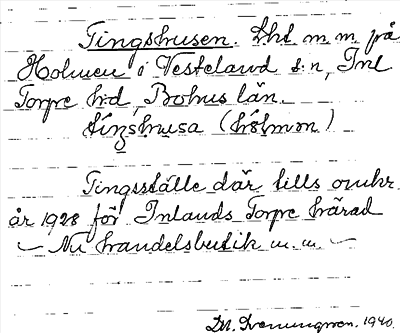 Tingshusen. Lht m m på
Holmen i Vesterland s:n, Inl
Torpe h:d, Bohus län.
(hólmon)
Tingsställe där tills omkr
år 1928 för Inlands Torpe härad
Nu handelsbutik m. m.
1940